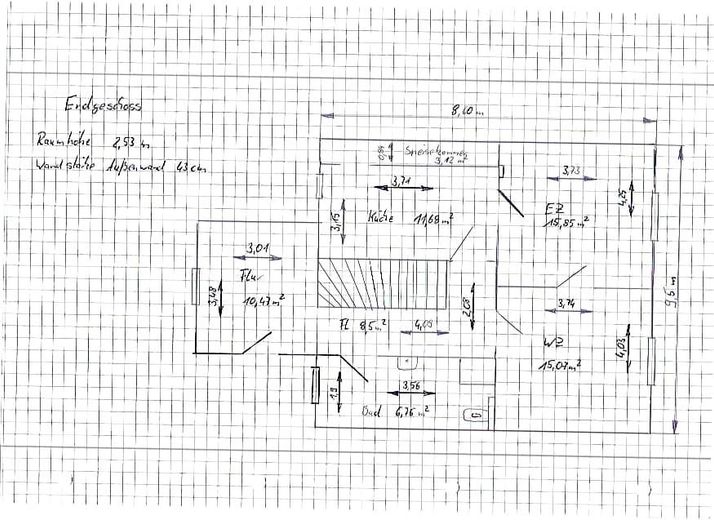 Erdgeschoss
Raumhöhe 2,53 m
Wandstärke Außenwand 43 cm
8,10 m
0,84
Speisekammer
3,12 m²
3,71
3,73
4,25
3,15
Küche 11,68 m²
EZ
15,85 m²
9,5 m
3,01
Flur
3,48
10,47 m²
2,08
3,74
Fl 8,5 m²
4,09
WZ
4,03
15,07 m²
3,56
1,9
Bad 6,76 m²